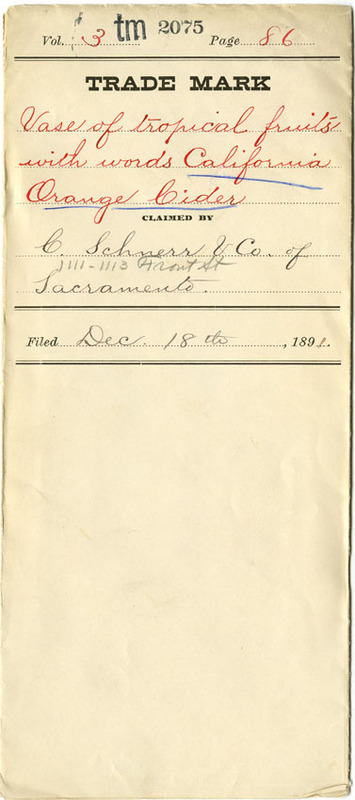 Vol. 3 tm 2075 Page 86
TRADE MARK
Vase of tropical fruits
with words California
Orange Cider
CLAIMED BY
C. Schnerr & Co. of
1111-1113 Front St
Sacramento.
Filed Dec. 18th, 189